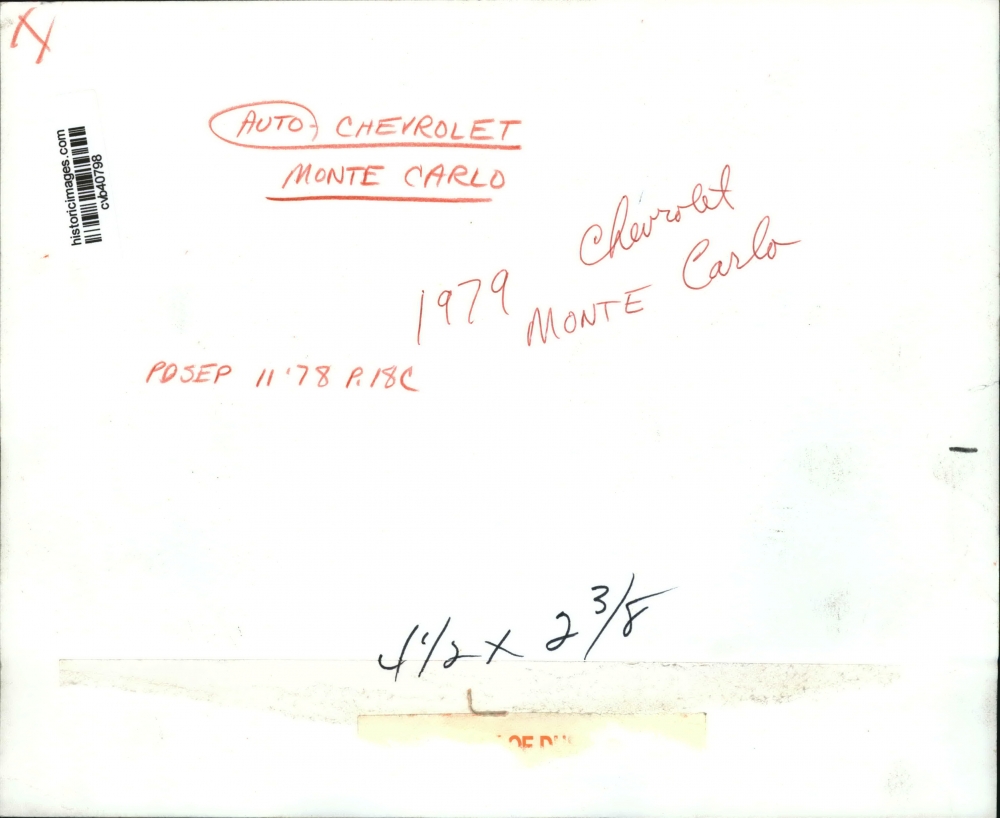 historicimages.com
cvb40798
AUTO- CHEVROLET
MONTE CARLO
1979 Chevrolet
MONTE Carlo
PDSEP 11 '78 P.18C
4 1/2 x 2 3/8
OF